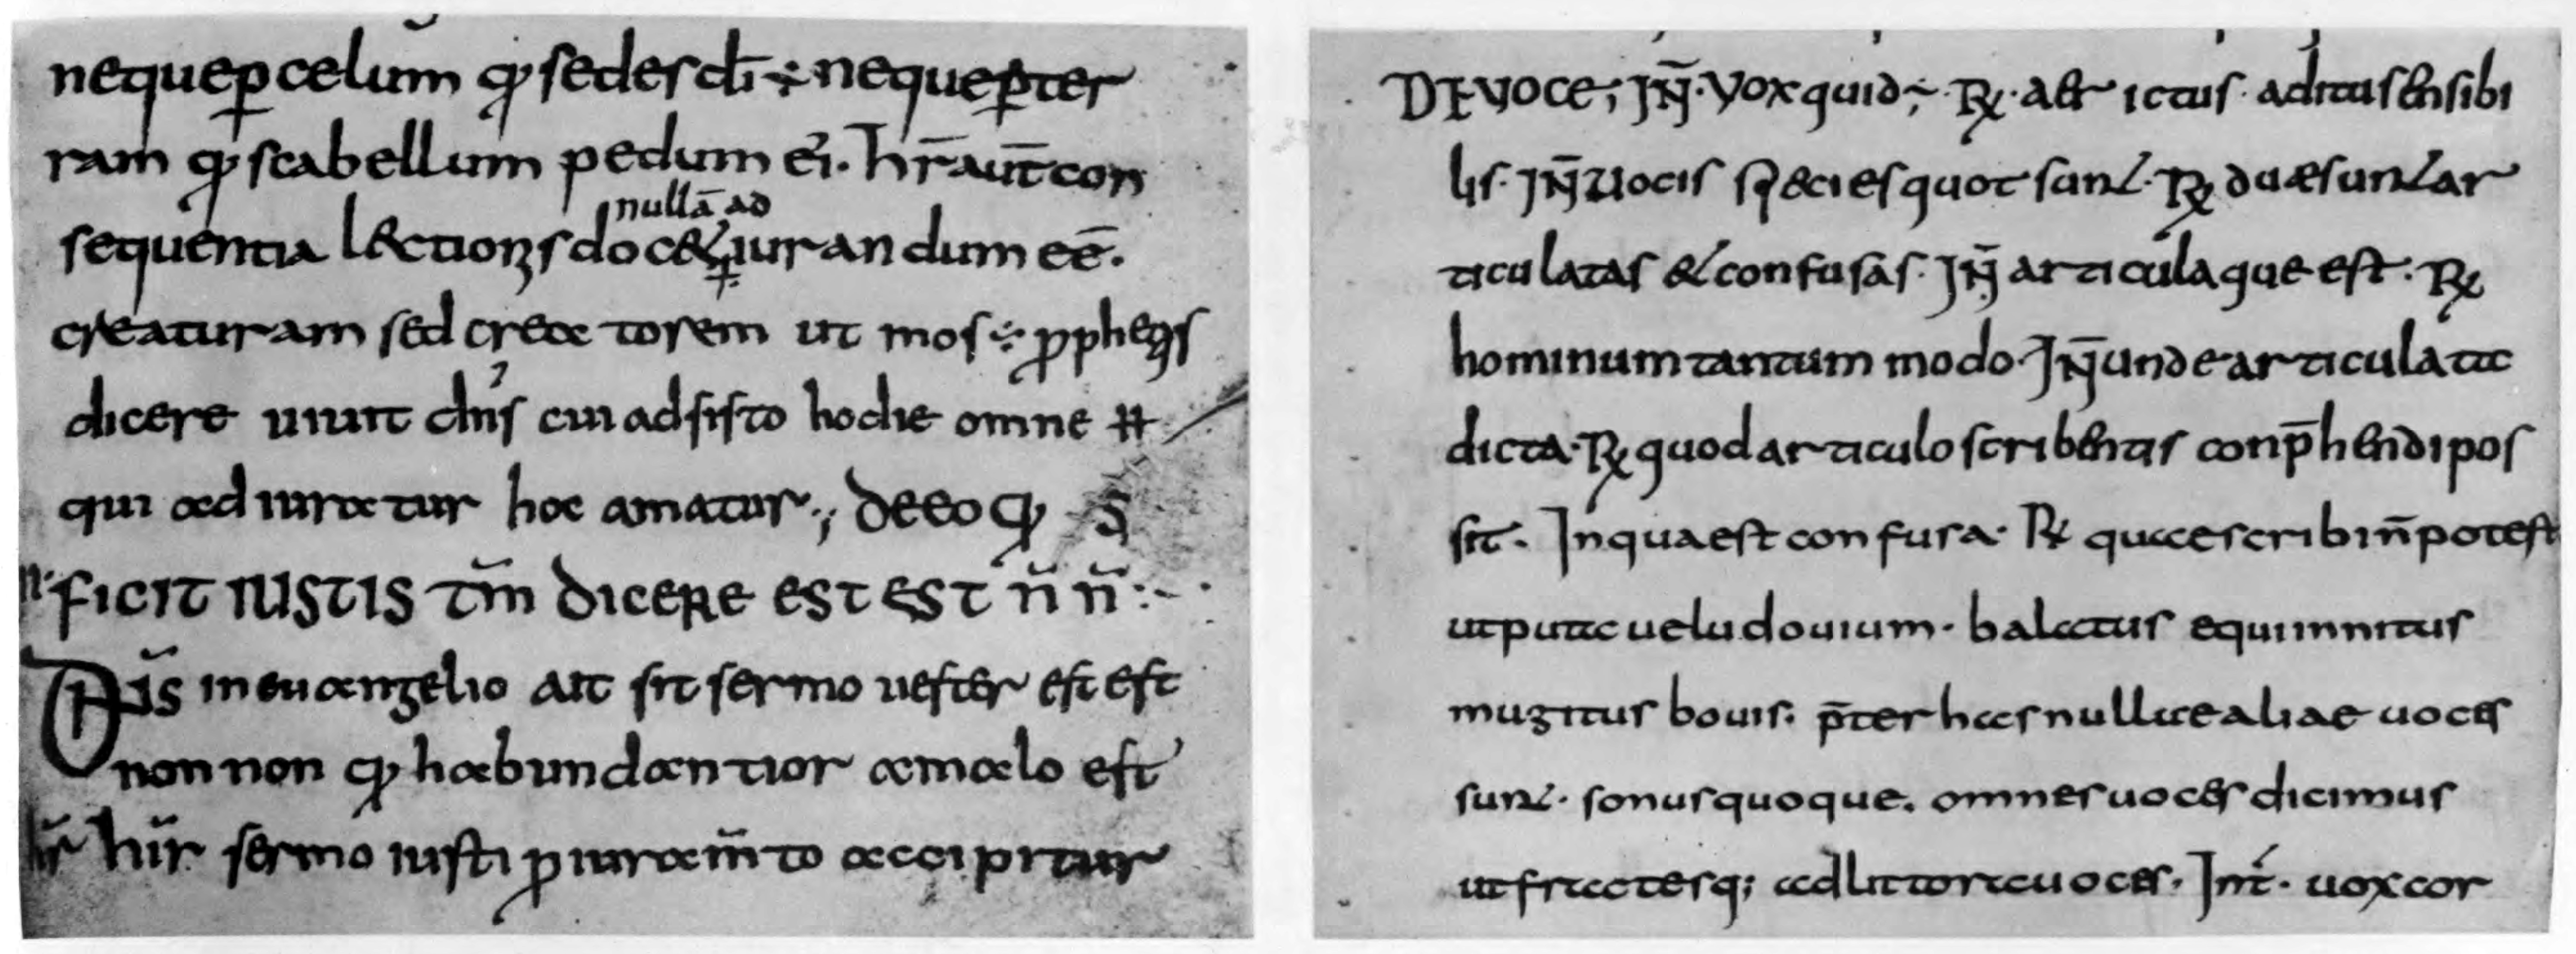 neque ꝑ celum ꝙ sedes dī ÷ neque ꝑ ter
ram ꝙ scabellum pedum ei. hr̄ aut̄ con
nullā ad
sequentia lectionis docet iurandum eē.
creaturam sed creatorem ut mos ÷ ꝓphetis
dicere uiuit dn̄s cui adsisto hodie omne
qui adiuratur hoc amatur ; DE EO Q
FICIT IUSTIS TM̄ DICERE EST EST N̄ N̄
Dn̄s in euangelio ait sit sermo uester est est
non non ꝙ habundantior amalo est
hīr sermo iusti ꝓ iuram̄to accipitur
DE VOCE; IN̄. Vox quid ÷ ℞. aer ictus. auditu sensibi
lis. IN̄ Uocis species quot sunt. ℞ duae sunt ar
ticulatas & confusas. IN̄ articula que est. ℞
hominum tantum modo. IN̄ unde articulata
dicta. ℞ quod articulo scribentis conp̄hendi pos
sit. In quae est confusa. ℞ quae scribi n̄ potest
ut puta uelud ouium. balatus equi innitus
mugitus bouis. p̄ter haes nullae aliae uoces
sunt. sonus quoque. omnes uoces dicimus
ut fractesq; ad littora uoces. Int̄. uox cor